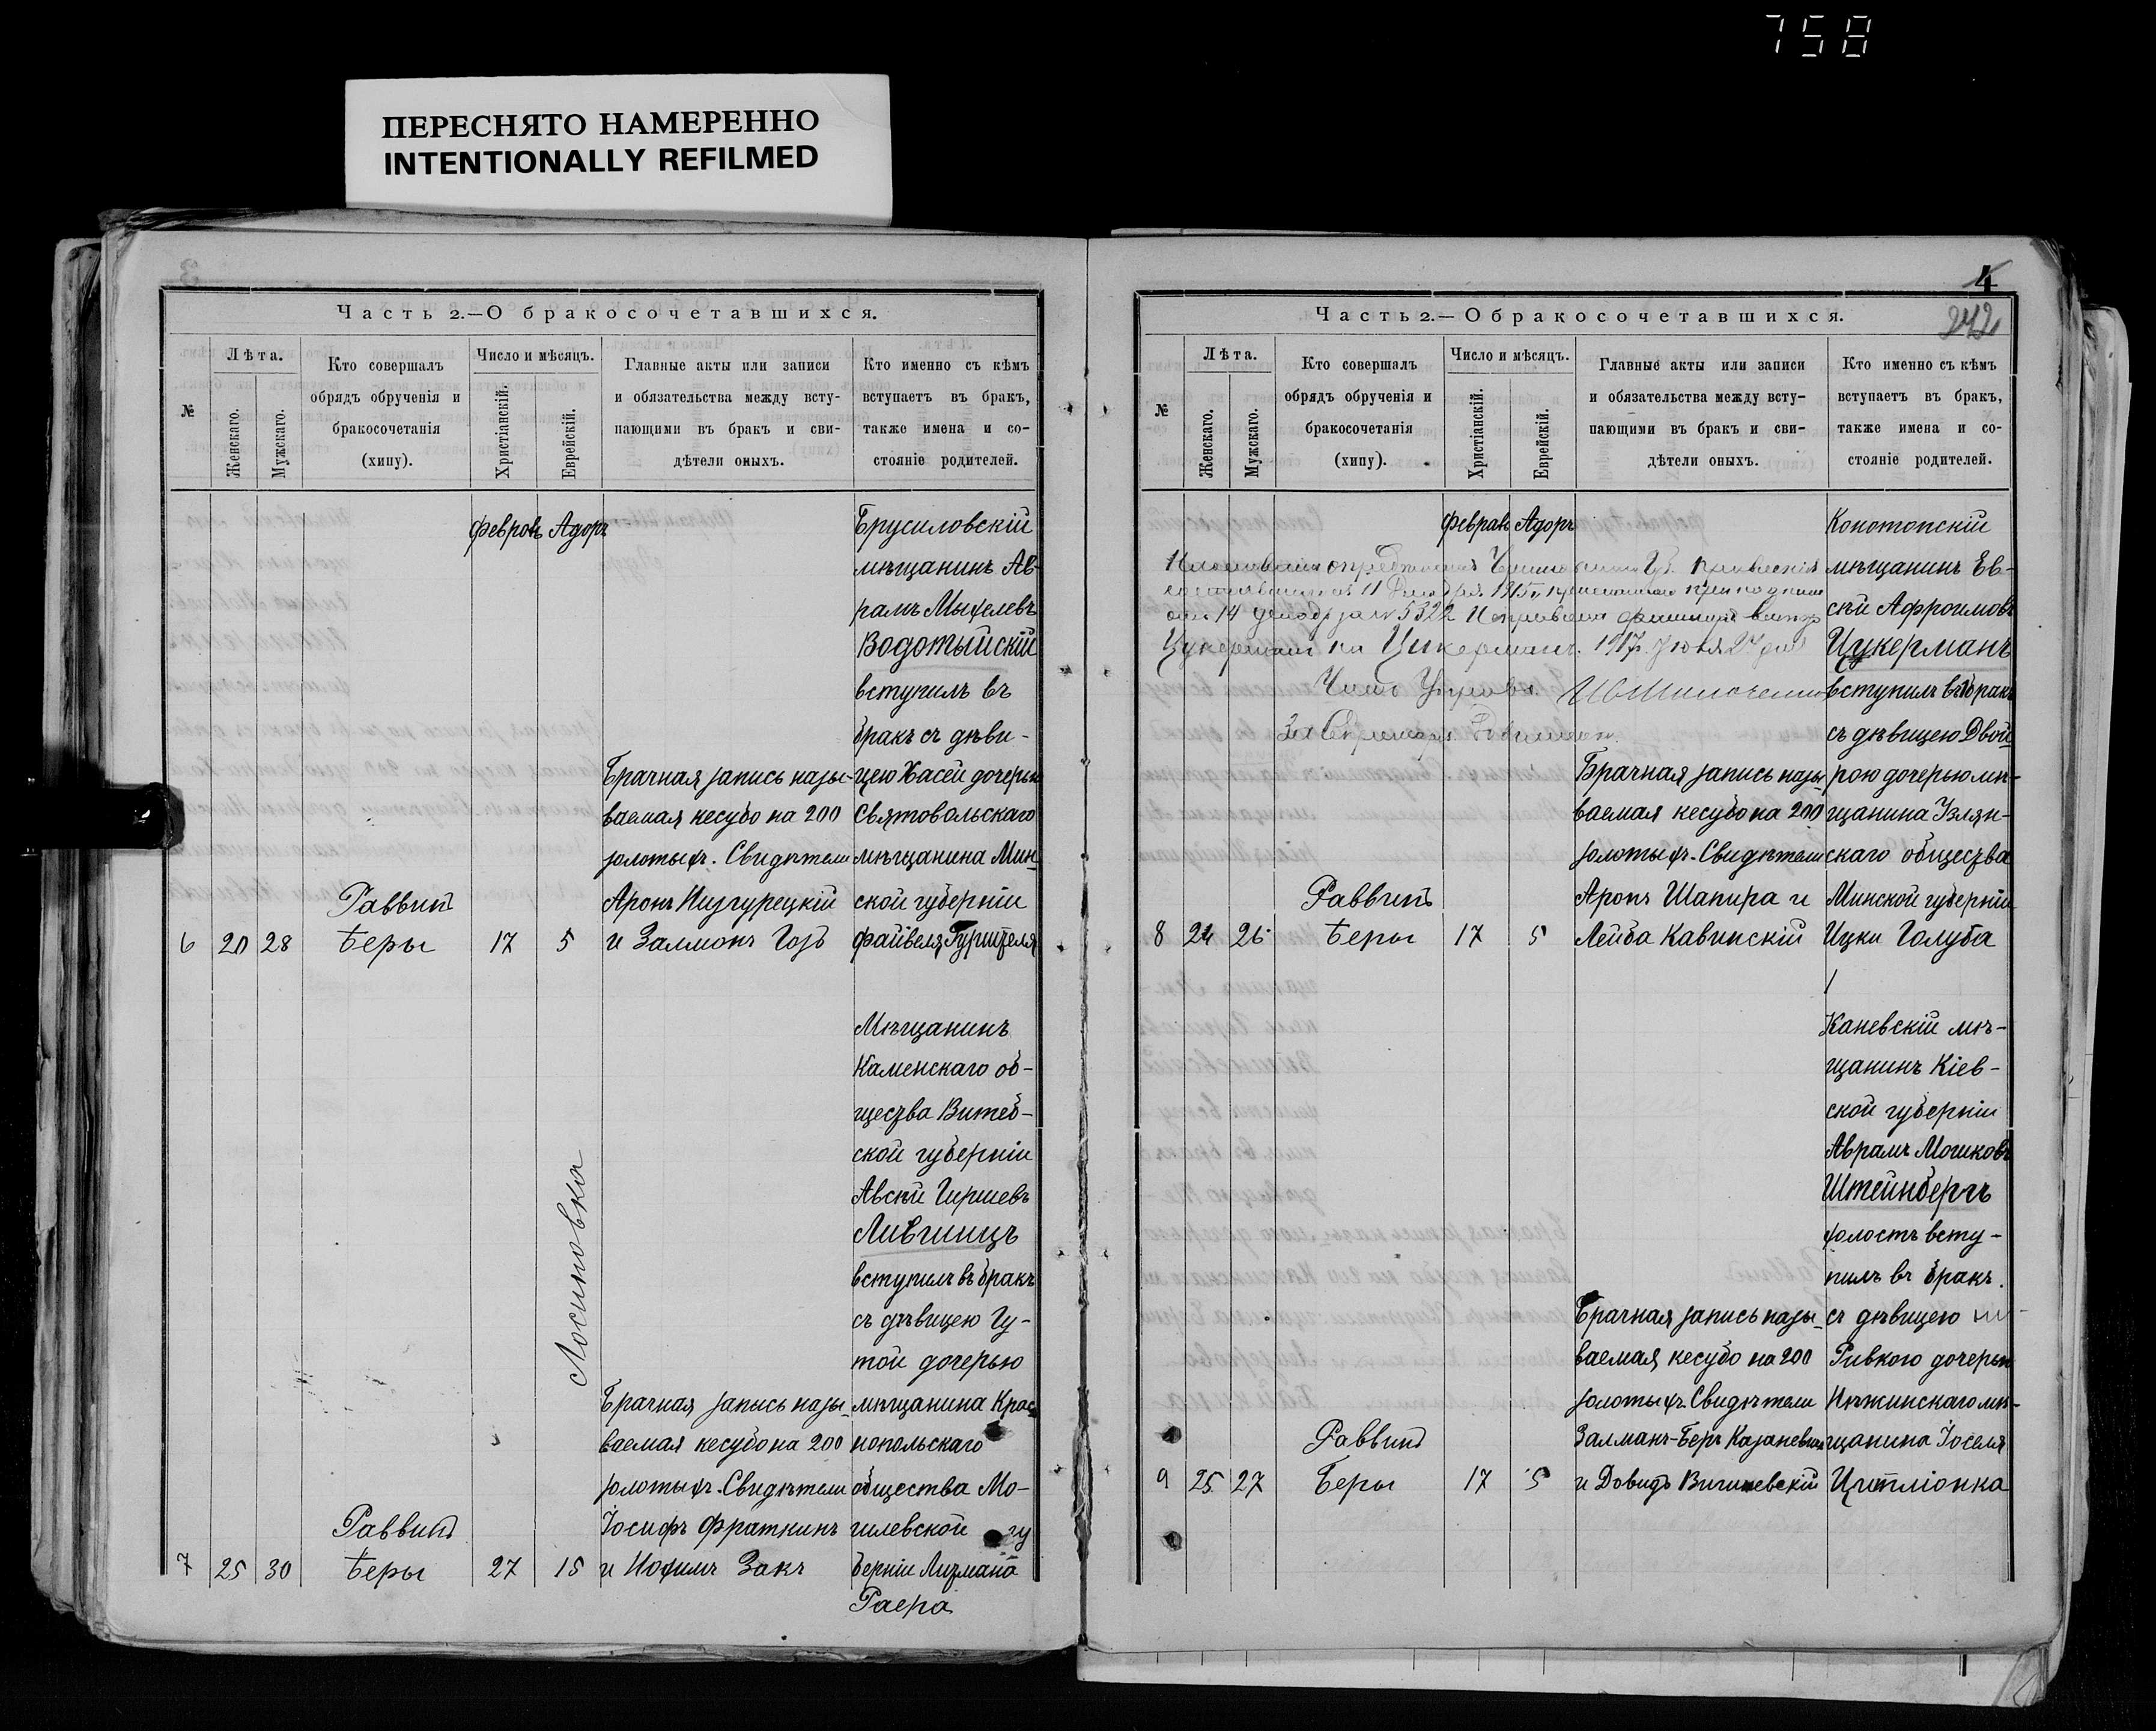 758
ПЕРЕСНЯТО НАМЕРЕННО
INTENTIONALLY REFILMED
Часть 2.—О бракосочетавшихся.
№
Лѣта.
Женскаго.
Мужскаго.
Кто совершалъ
обрядъ обрученія и
бракосочетанія
(хипу).
Число и мѣсяцъ.
Христіанскій.
Еврейскій.
Главные акты или записи
и обязательства между всту-
пающими въ бракъ и сви-
дѣтели оныхъ.
Кто именно съ кѣмъ
вступаетъ въ бракъ,
также имена и со-
стояніе родителей.
6
20
28
Раввинъ
Беры
Февраль
17
Адоръ
5
Брачная запись назы-
ваемая кесубо на 200
золотыхъ. Свидѣтели
Аронъ Низгурецкій
и Залмонъ Гозъ
Брусиловскій
мѣщанинъ Ав-
рамъ Мыхелевъ
Водотыйскій
вступилъ въ
бракъ съ дѣви-
цею Хасей дочерью
Святовольскаго
мѣщанина Мин-
ской губерніи
Файвеля
7
25
30
Раввинъ
Беры
27
15
Лосиновка
Брачная запись назы-
ваемая кесубо на 200
золотыхъ. Свидѣтели
Іосифъ Фраткинъ
и Нохимъ Закъ
Мѣщанинъ
Каменскаго об-
щества Витеб-
ской губерніи
Авсѣй Гиршевъ
Лившицъ
вступилъ въ бракъ
съ дѣвицею Гу-
той дочерью
мѣщанина Крас-
нопольскаго
общества Мо-
гилевской гу
берніи Лизмана
Раера
4
242
Часть 2.—О бракосочетавшихся.
№
Лѣта.
Женскаго.
Мужскаго.
Кто совершалъ
обрядъ обрученія и
бракосочетанія
(хипу).
Число и мѣсяцъ.
Христіанскій.
Еврейскій.
Главные акты или записи
и обязательства между всту-
пающими въ бракъ и сви-
дѣтели оныхъ.
Кто именно съ кѣмъ
вступаетъ въ бракъ,
также имена и со-
стояніе родителей.
8
24
26
Раввинъ
Беры
Февраль
17
Адоръ
5
11 Декабря 1915 г.
14 декабря за № 5322
Цукерманъ на Цикерманъ. 1917 г. Іюля 27 дня
Брачная запись назы-
ваемая кесубо на 200
золотыхъ. Свидѣтели
Аронъ Шапира и
Лейба Кавинскій
Конотопскій
мѣщанинъ Ев-
сѣй Афроимовъ
Цукерманъ
вступилъ въ бракъ
съ дѣвицею Двой-
рою дочерью мѣ-
щанина Узлян-
скаго общества
Минской губерніи
Ицки Голуба
9
25
27
Раввинъ
Беры
17
5
Брачная запись назы-
ваемая кесубо на 200
золотыхъ Свидѣтели
Залманъ-Беръ
и Довидъ Вишневскій
Каневскій мѣ-
щанинъ Кіев-
ской губерніи
Аврамъ Мошковъ
Штейнбергъ
холостъ всту-
пилъ въ бракъ.
съ дѣвицею
Ривкою дочерью
Нѣжинскаго мѣ-
щанина Іоселя
Цитліонка